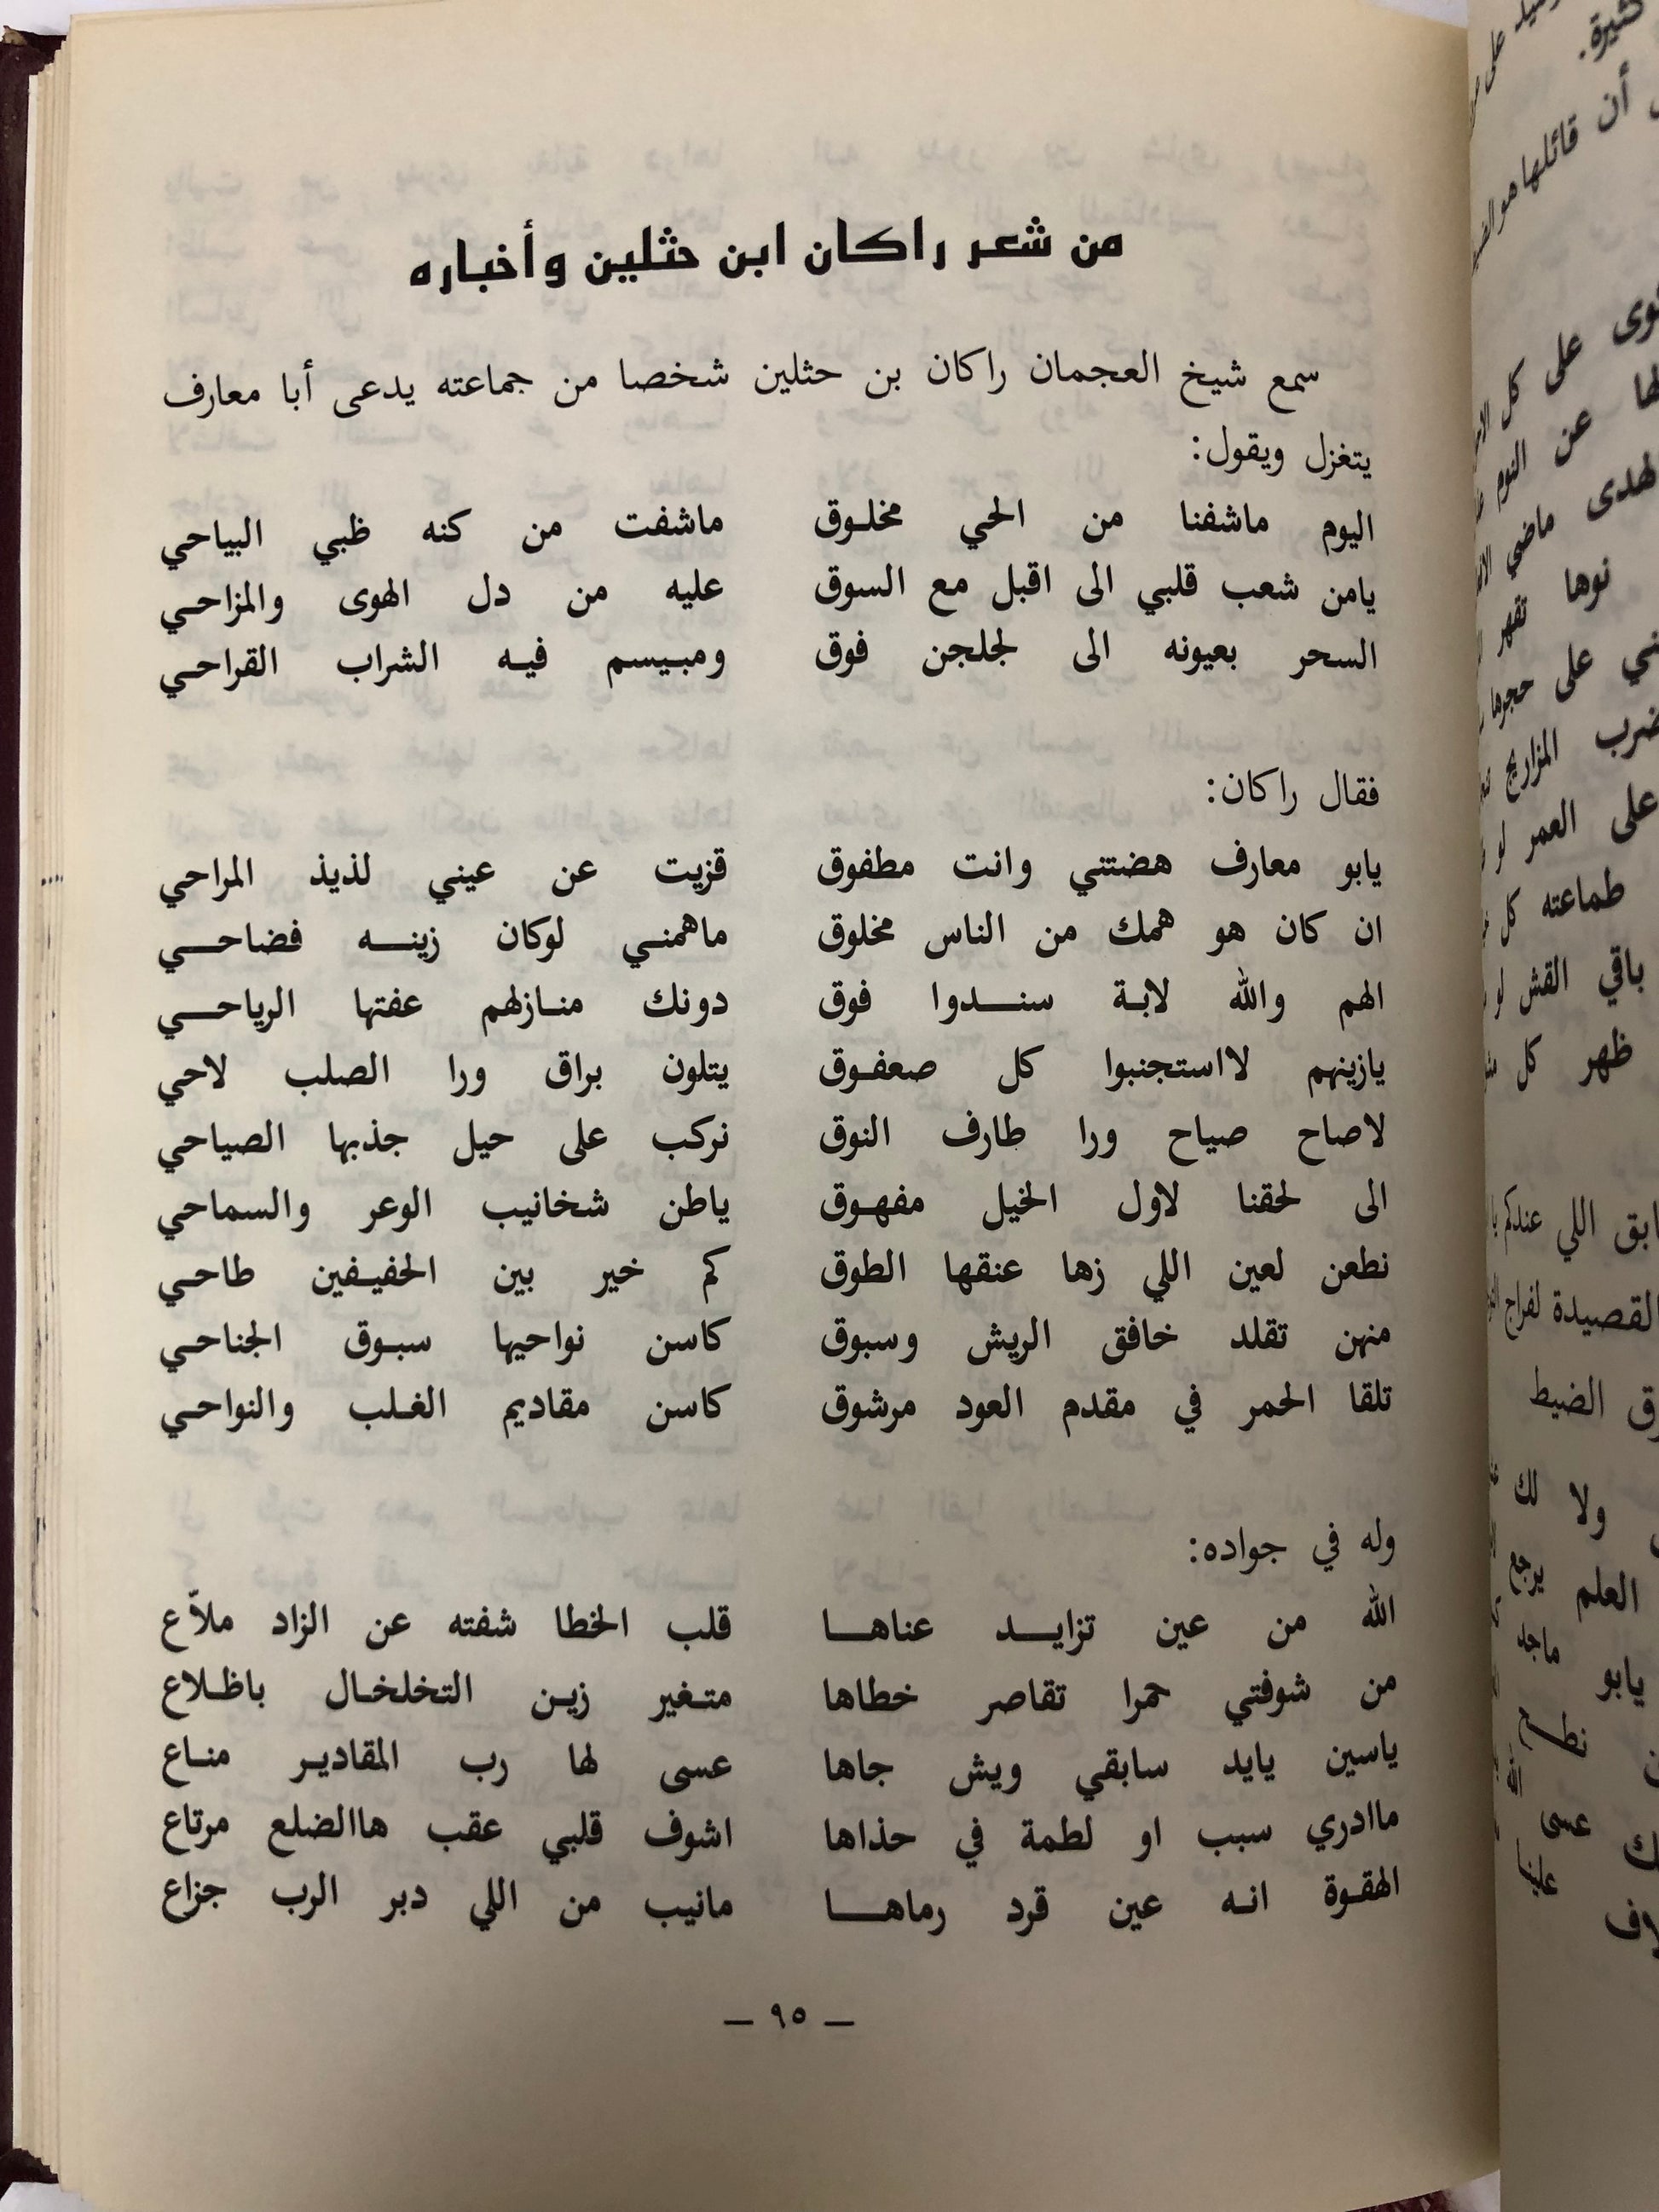 من شعر راكان ابن حثلين وأخباره
سمع شيخ العجمان راكان بن حثلين شخصا من جماعته يدعى أبا معارف
يتغزل ويقول:
اليوم ماشفنا من الحي مخلوق ماشفت من كنه ظبي البياحي
يامن شعب قلبي الى اقبل مع السوق عليه من دل الهوى والمزاحي
السحر بعيونه الى لجلجن فوق ومبيسم فيه الشراب القراحي
فقال راكان:
يابو معارف هضتني وانت مطفوق قزيت عن عيني لذيذ المراحي
ان كان هو همك من الناس مخلوق ماهمني لوكان زينه فضاحي
الهم والله لابة سندوا فوق دونك منازلهم عفتها الرياحي
يازينهم لااستجنبوا كل صعفوق يتلون براق ورا الصلب لاحي
لاصاح صياح ورا طارف النوق نركب على حيل جذبها الصياحي
الى لحقنا لاول الخيل مفهوق ياطن شخانيب الوعر والسماحي
نطعن لعين اللي زها عنقها الطوق كم خير بين الحفيفين طاحي
منهن تقلد خافق الريش وسبوق كاسن نواحيها سبوق الجناحي
تلقا الحمر في مقدم العود مرشوق كاسن مقاديم الغلب والنواحي
وله في جواده:
الله من عين تزايد عناها قلب الخطا شفته عن الزاد ملاّع
من شوفتي حمرا تقاصر خطاها متغير زين التخلخال باظلاع
ياسين يايد سابقي ويش جاها عسى لها رب المقادير مناع
ماادري سبب او لطمة في حذاها اشوف قلبي عقب هاالضلع مرتاع
الهقوة انه عين قرد رماها مانيب من اللي دبر الرب جزاع
— ٩٥ —
كثيرة.
أن قائلها هو
على كل
عن النوم
ماضي
نوها تقهر
على حجرها
المزاريج
على العمر لو
طماعته كل
باقي القش لو
ظهر كل
اللي عندكم
القصيدة لفراج
الضيط
ولا لك
العلم يرجع
يابو ماجد
نطرح الله
عسى علينا